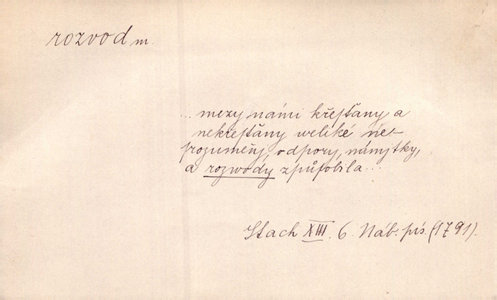 rozvod m.
... mezy námi křesťany a
nekřesťany weliké ne-
srozuměnj, odpory, námytky,
a rozwody způsobila...
Stach XIII. 6 Náb. pís. (1791).